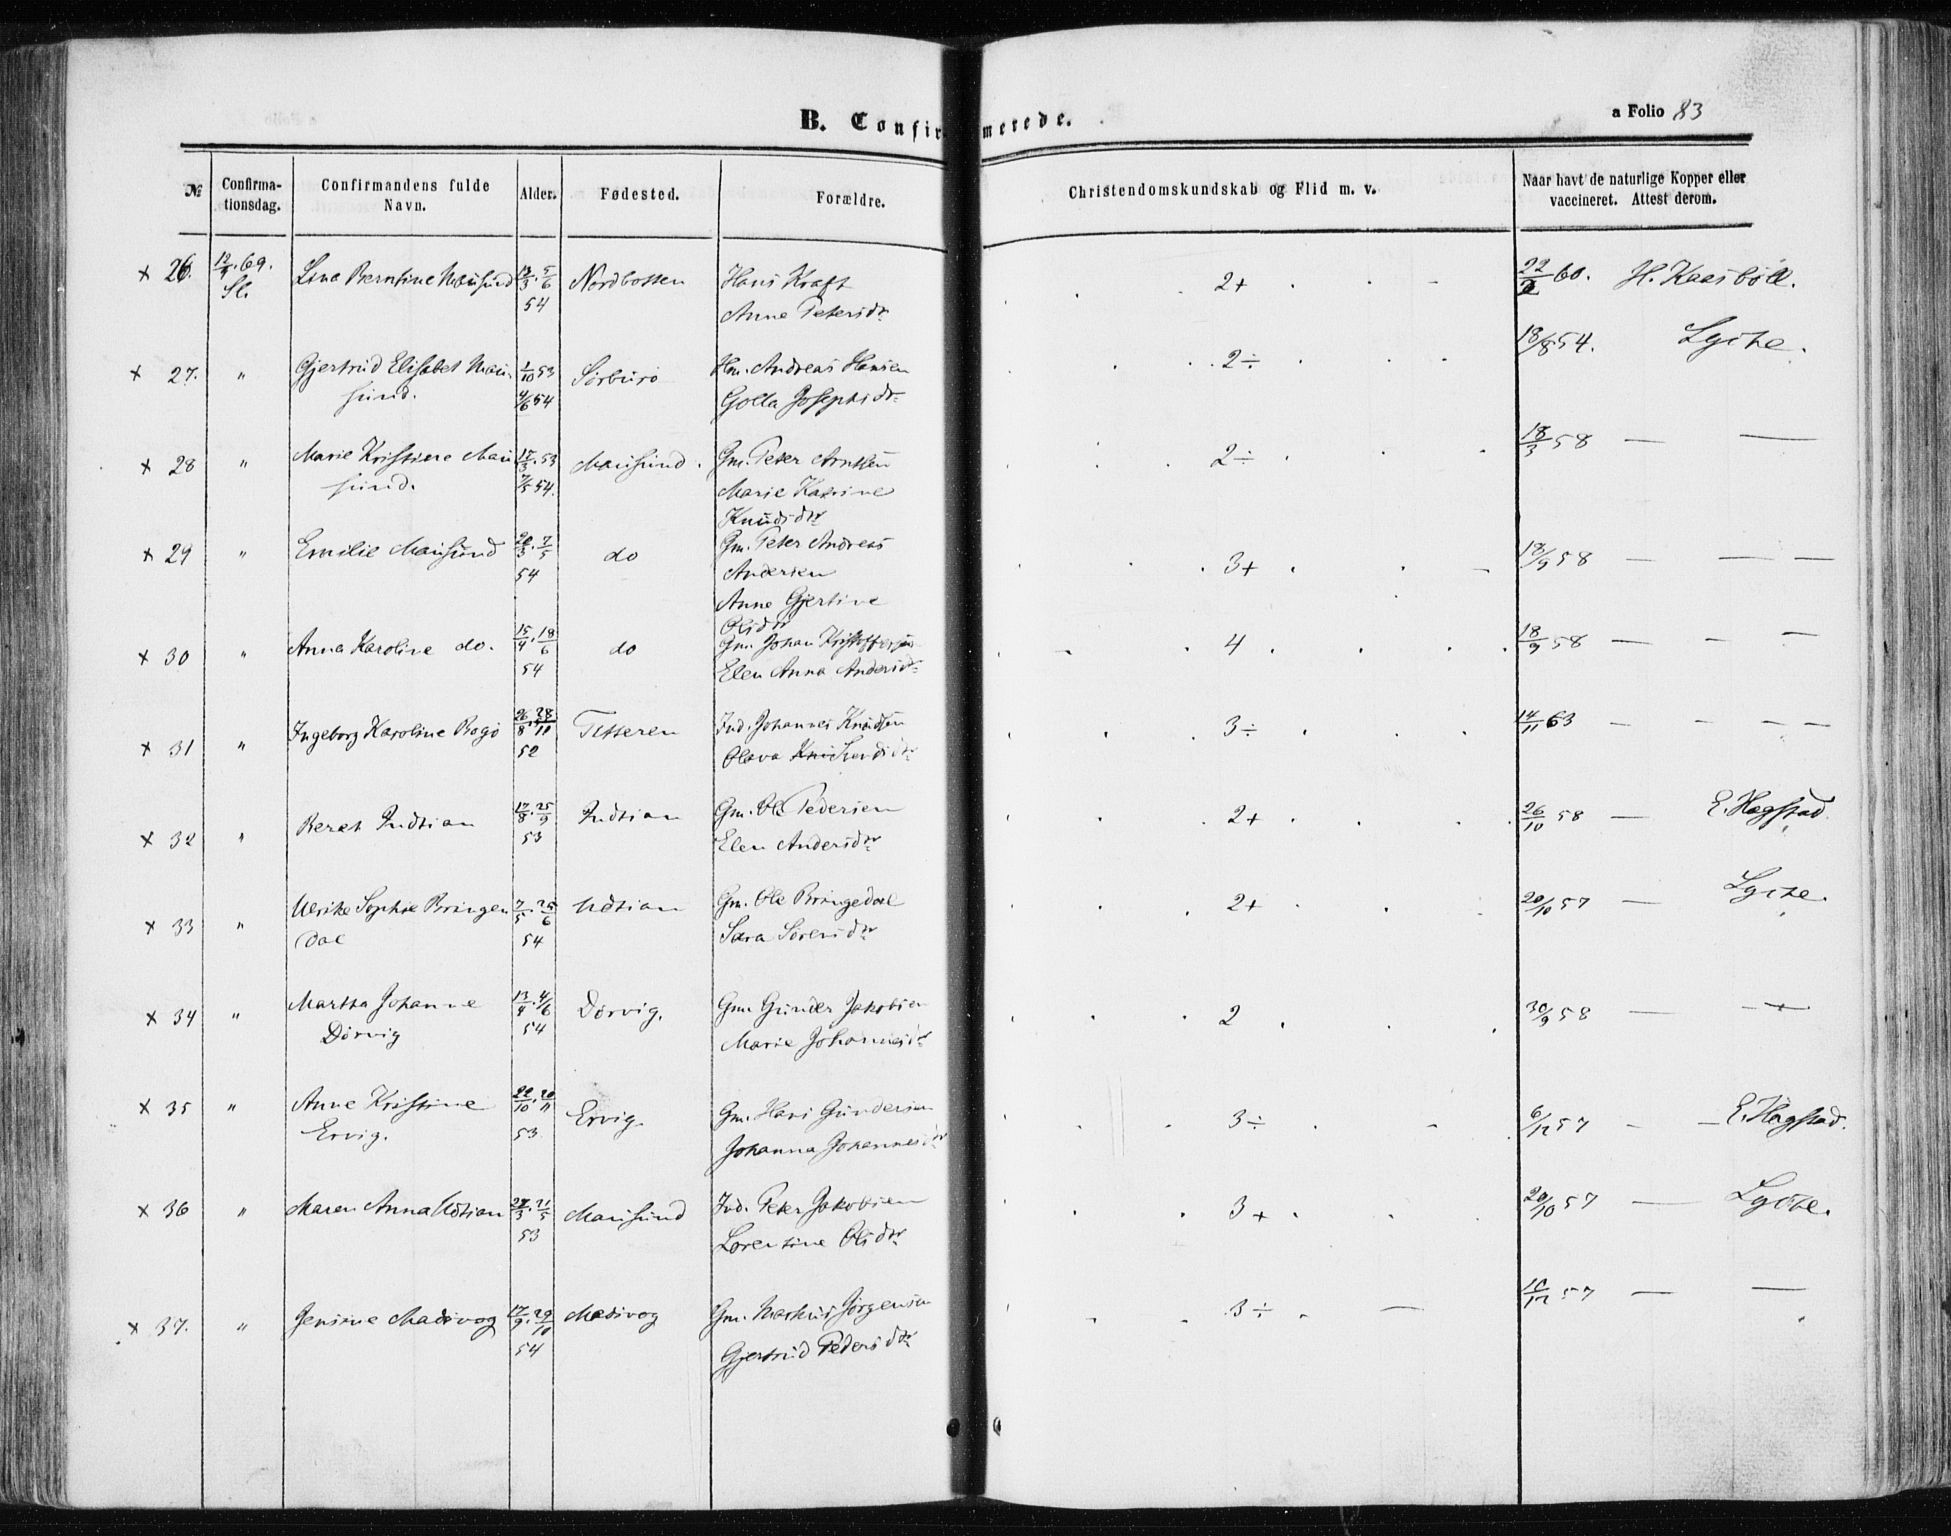 B. Confirmerede.
a Folio 83
№ Confirmationsdag. Confirmandens fulde Navn. Alder. Fødested. Forældre. Christendomskundskab og Flid m. v. Naar havt de naturlige Kopper eller vaccineret. Attest derom.
× 26. 12/9.69. Sl. Lina Berntine Mausund 13/3. 5/6 54 Nordbotten Hans Kraft 2+ 22/2 60. H. Kaasbøll.
Anne Petersdr
× 27. " Gjertrud Elisabet Mau- 1/10 53 Sørburö Hm. Andreas Hansen 2÷ 18/8 54. Lyche.
sund. 4/6 54 Golla Josephsdr
× 28 " Marie Kristine Mau 17/3.53 Mausund. Gm. Peter Arntsen 2÷ 18/3 58 — —
sund. 7/5 54. Marie Katrine
Knudsdr
× 29 " Emilie Mausund 20/3. 7/5 do Gm. Peter Andreas 3+ 18/9 58 — — —
54 Andersen
Anne Gjertine
Olsdr
× 30 " Anna Karoline do. 15/4. 18/6 do Gm. Johan Kristoffersen 4 18/9 58 — — —
54 Elen Anna Andersdr
× 31 " Ingeborg Karoline Bogö 26/8. 28/10 Titteren Ind. Johannes Knudsen 3÷ 14/11 63 — — — —
52 Olava Knu Iversdr
× 32 " Beret Indtian 17/8. 25/9 Indtian Gm. Ole Pedersen 2+ 26/10 58 — E. Hagstad.
53 Elen Andersdr
× 33 " Ulrike Sophie Bringen 7/5. 25/6 Udtian Gm. Ole Bringedal 2+ 20/10 57 — Lyche.
dal 54 Sara Sörensdr
× 34 " Martha Johanne 13/4. 4/6 Dörvig. Gm. Gunder Jakobsen 2 30/9 58 — —
Dörvig 54 Marie Johannesdr
× 35 " Anne Kristine 22/10. 20/11 Ervig. Gm. Hans Gundersen 3÷ 6/12 57 — — E. Hagstad.
Ervig. 53 Johanna Johannesdr
× 36 " Maren Anna Udtian 27/3. 21/5 Mausund Ind. Peter Jakobsen 3+ 20/10 57 — Lyche.
53 Lorentine Olsdr
× 37. " Jensine Madsvog 17/9. 29/10 Madsvog Gm. Markus Jörgensen 3÷ — 10/12 57 — —
54 Gjertrud Pedersdr